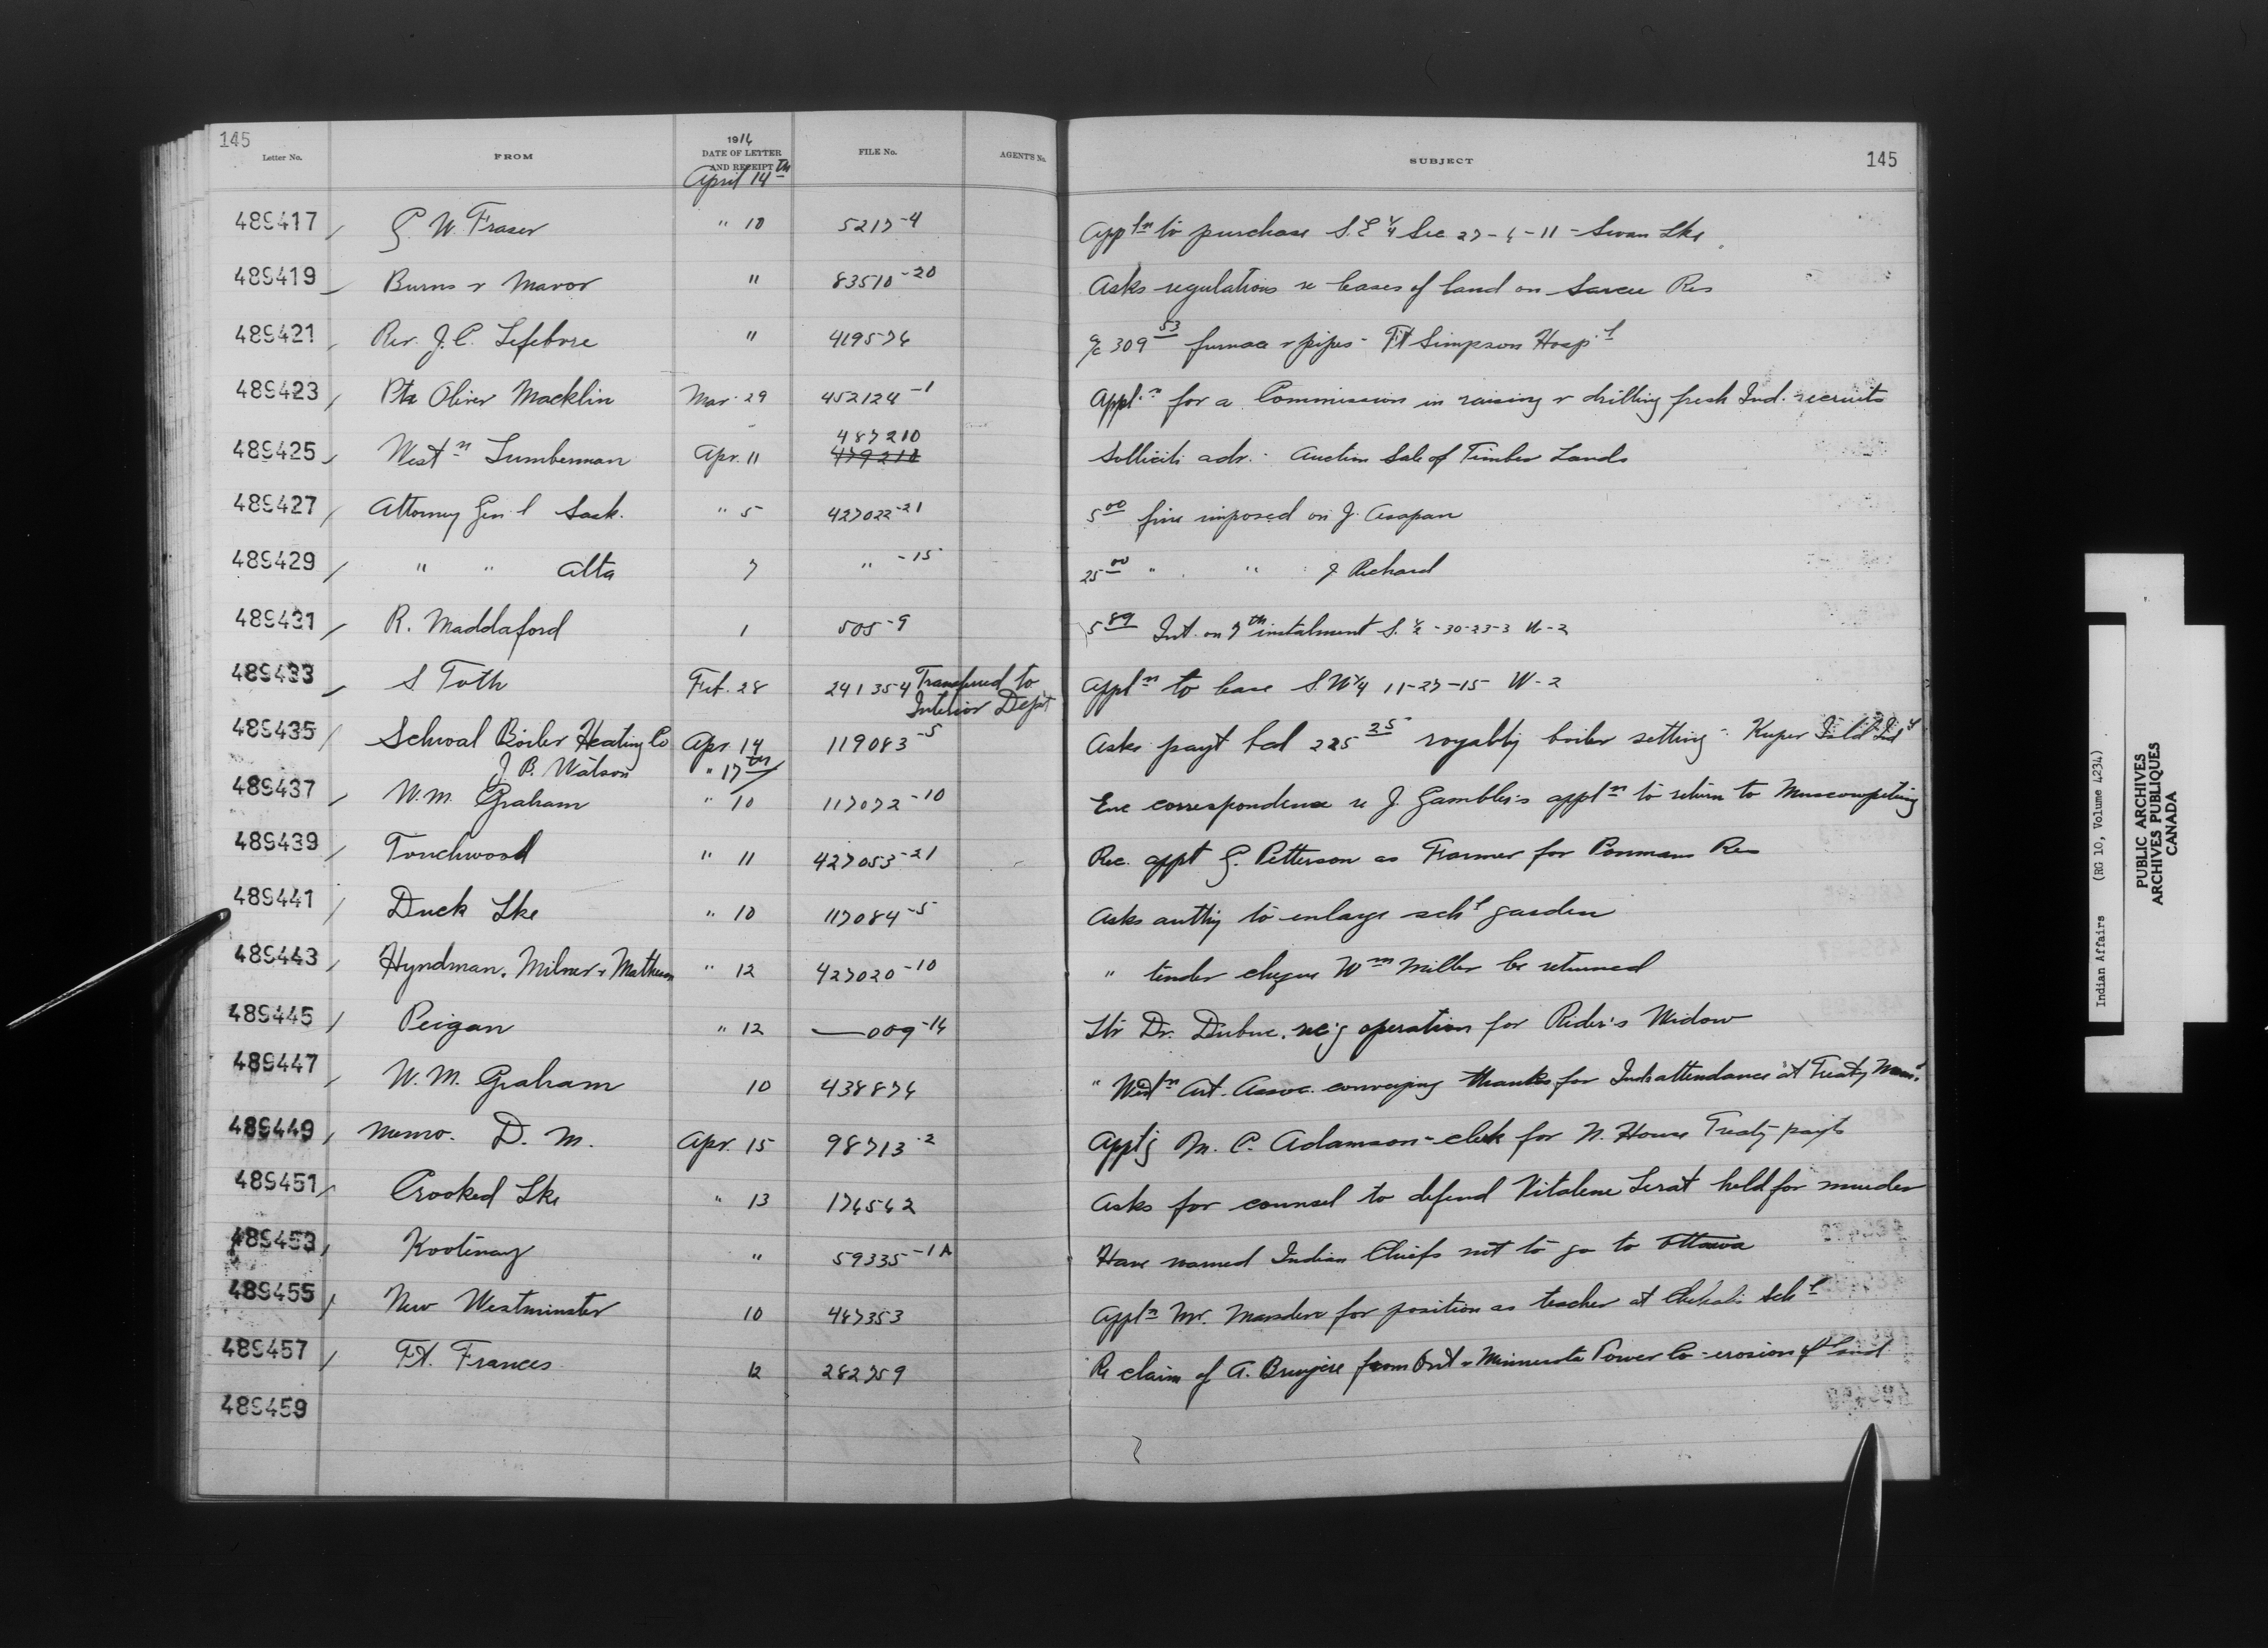 145
1916
Letter No. FROM DATE OF LETTER AND RECEIPT FILE No. AGENT'S No. SUBJECT 145
April 14th
489417 / G. W. Fraser " 10 5217-4 Appln to purchase S.E ¼ Sec 27-6-11 - Swan Lke
489419 Burns & Mavor " 83510-20 Asks regulations re leases of land on Sarcee Res
489421 Rev. J. C. Lefebvre " 419576 a/c 309 53 furnace & pipes - Ft Simpson Hosp'l
489423 / Pte Oliver Macklin Mar. 29 452124-1 Appl'n for a Commission in raising & drilling fresh Ind. recruits
487210
489425 Westn Lumberman Apr. 11 479210 Sollicits adv. - Auction Sale of Timber Lands
489427 / Attorney Gen'l Sask. " 5 427022-21 5 00 fine imposed on J. Asapan
489429 / " " Alta 7 " -15 25 00 " " J Richard
489431 / R. Maddaford 1 505-9 5 89 Int. on 7th instalment S. ½ -30-23-3 W-2
489433 S Toth Feb. 28 241354 Transferred to Interior Dept Appln to lease S.W¼ 11-27-15 W-2
489435 / Schwal Boiler Heating Co Apr 14 119083-5 Asks payt bal 225 25 boiler setting - Kuper Isld Ind'l
J. B. Watson " 17th
489437 / W.M. Graham " 10 117072-10 Enc correspondence re J. Gambler's appln to return to Muscowpeting
489439 / Touchwood " 11 427053-21 Rec. appt G. Petterson as Farmer for Poormans Res
489441 / Duck Lke " 10 117084-5 Asks authy to enlarge sch'l garden
489443 / Hyndman, Milner & Matheson " 12 427020-10 " tender cheque Wm Miller be returned
489445 / Peigan " 12 —009-14 Ltr Dr. Dubuc. re'g operation for Rider's Widow
489447 / W. M. Graham 10 438876 " Westn Art. Assoc. conveying thanks for Inds attendance at Treaty
489449 / Memo. D. M. Apr. 15 98713-2 Apptg M. C. Adamson - clerk for N. House Treaty payts
489451 / Crooked Lke " 13 174562 Asks for counsel to defend Vitalene Lerat held for murder
489453 / Kootenay " 59335-1A Have warned Indian Chiefs not to go to Ottawa
489455 / New Westminster 10 467353 Appln Mr. Marsden for position as teacher at Chehalis Sch'l
489457 / Ft. Frances 12 282759 Re claim of A. Bruyere from Ont & Minnesota Power Co - erosion of land
489459
Indian Affairs (RG 10, Volume 4234)
PUBLIC ARCHIVES
ARCHIVES PUBLIQUES
CANADA